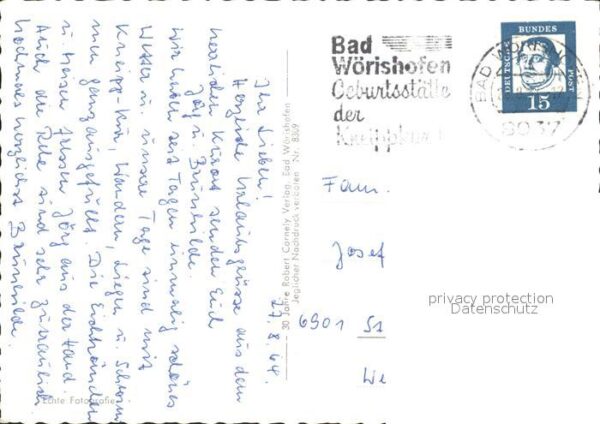 27.8.64.
Ihr Lieben!
Herzliche Urlaubsgrüsse aus dem
herrlichen Kurort senden Euch
Jörg u. Brunhilde.
Wir haben seit Tagen einmalig schönes
Wetter u. unsere Tage sind mit
Kneipp-Kur, Wandern, Liegen u. Schwimmen
nun ganz ausgefüllt. Die Eichhörnchen
u. Meisen fressen Jörg aus der Hand.
Auch die Rehe sind sehr zutraulich
Nochmals herzlichst Brunhilde.
30 Jahre Robert Cornely, Verlag, Bad Wörishofen Nr. 8369
Jeglicher Nachdruck verboten
Echte Fotografie
Bad
Wörishofen
Geburtsstätte
der
Kneippkur
BAD WÖRISHOFEN
8939
DEUTSCHE BUNDESPOST
15
Fam.
Josef
6901 St
We
privacy protection
Datenschutz